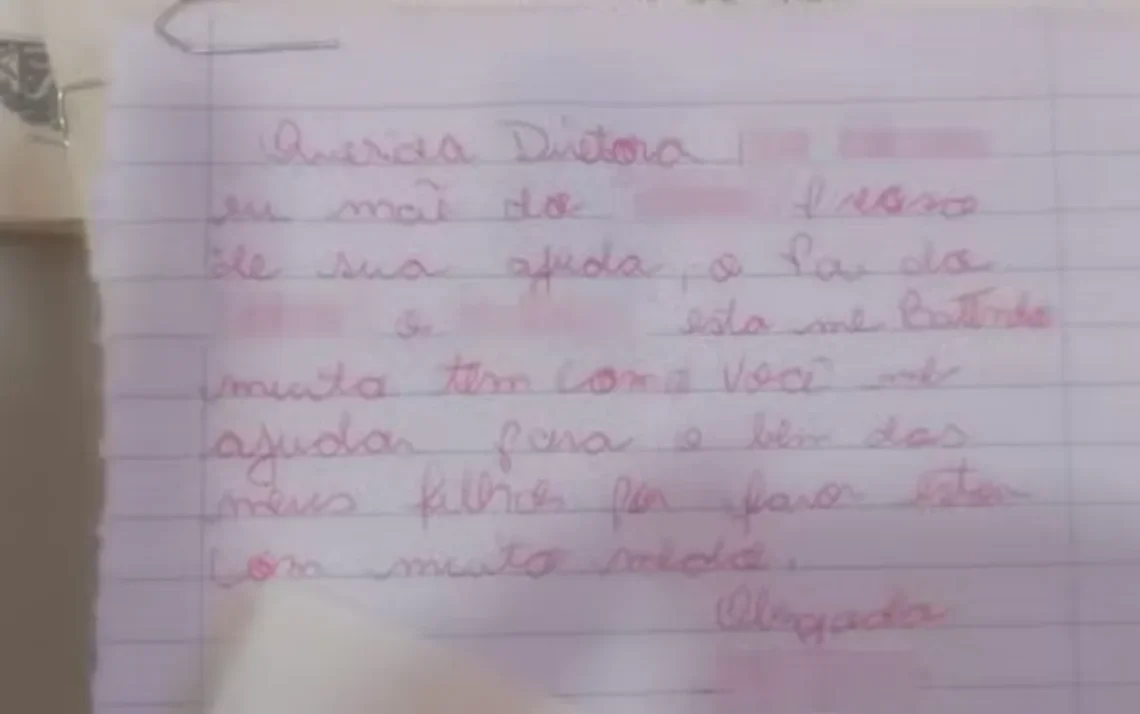 Querida Diretora
eu mãi do preciso
de sua ajuda, o Pai do
e esta me Battendo
muito tem como você me
ajudar para o bem dos
meus filhos por favor estou
com muito medo.
Obrigada